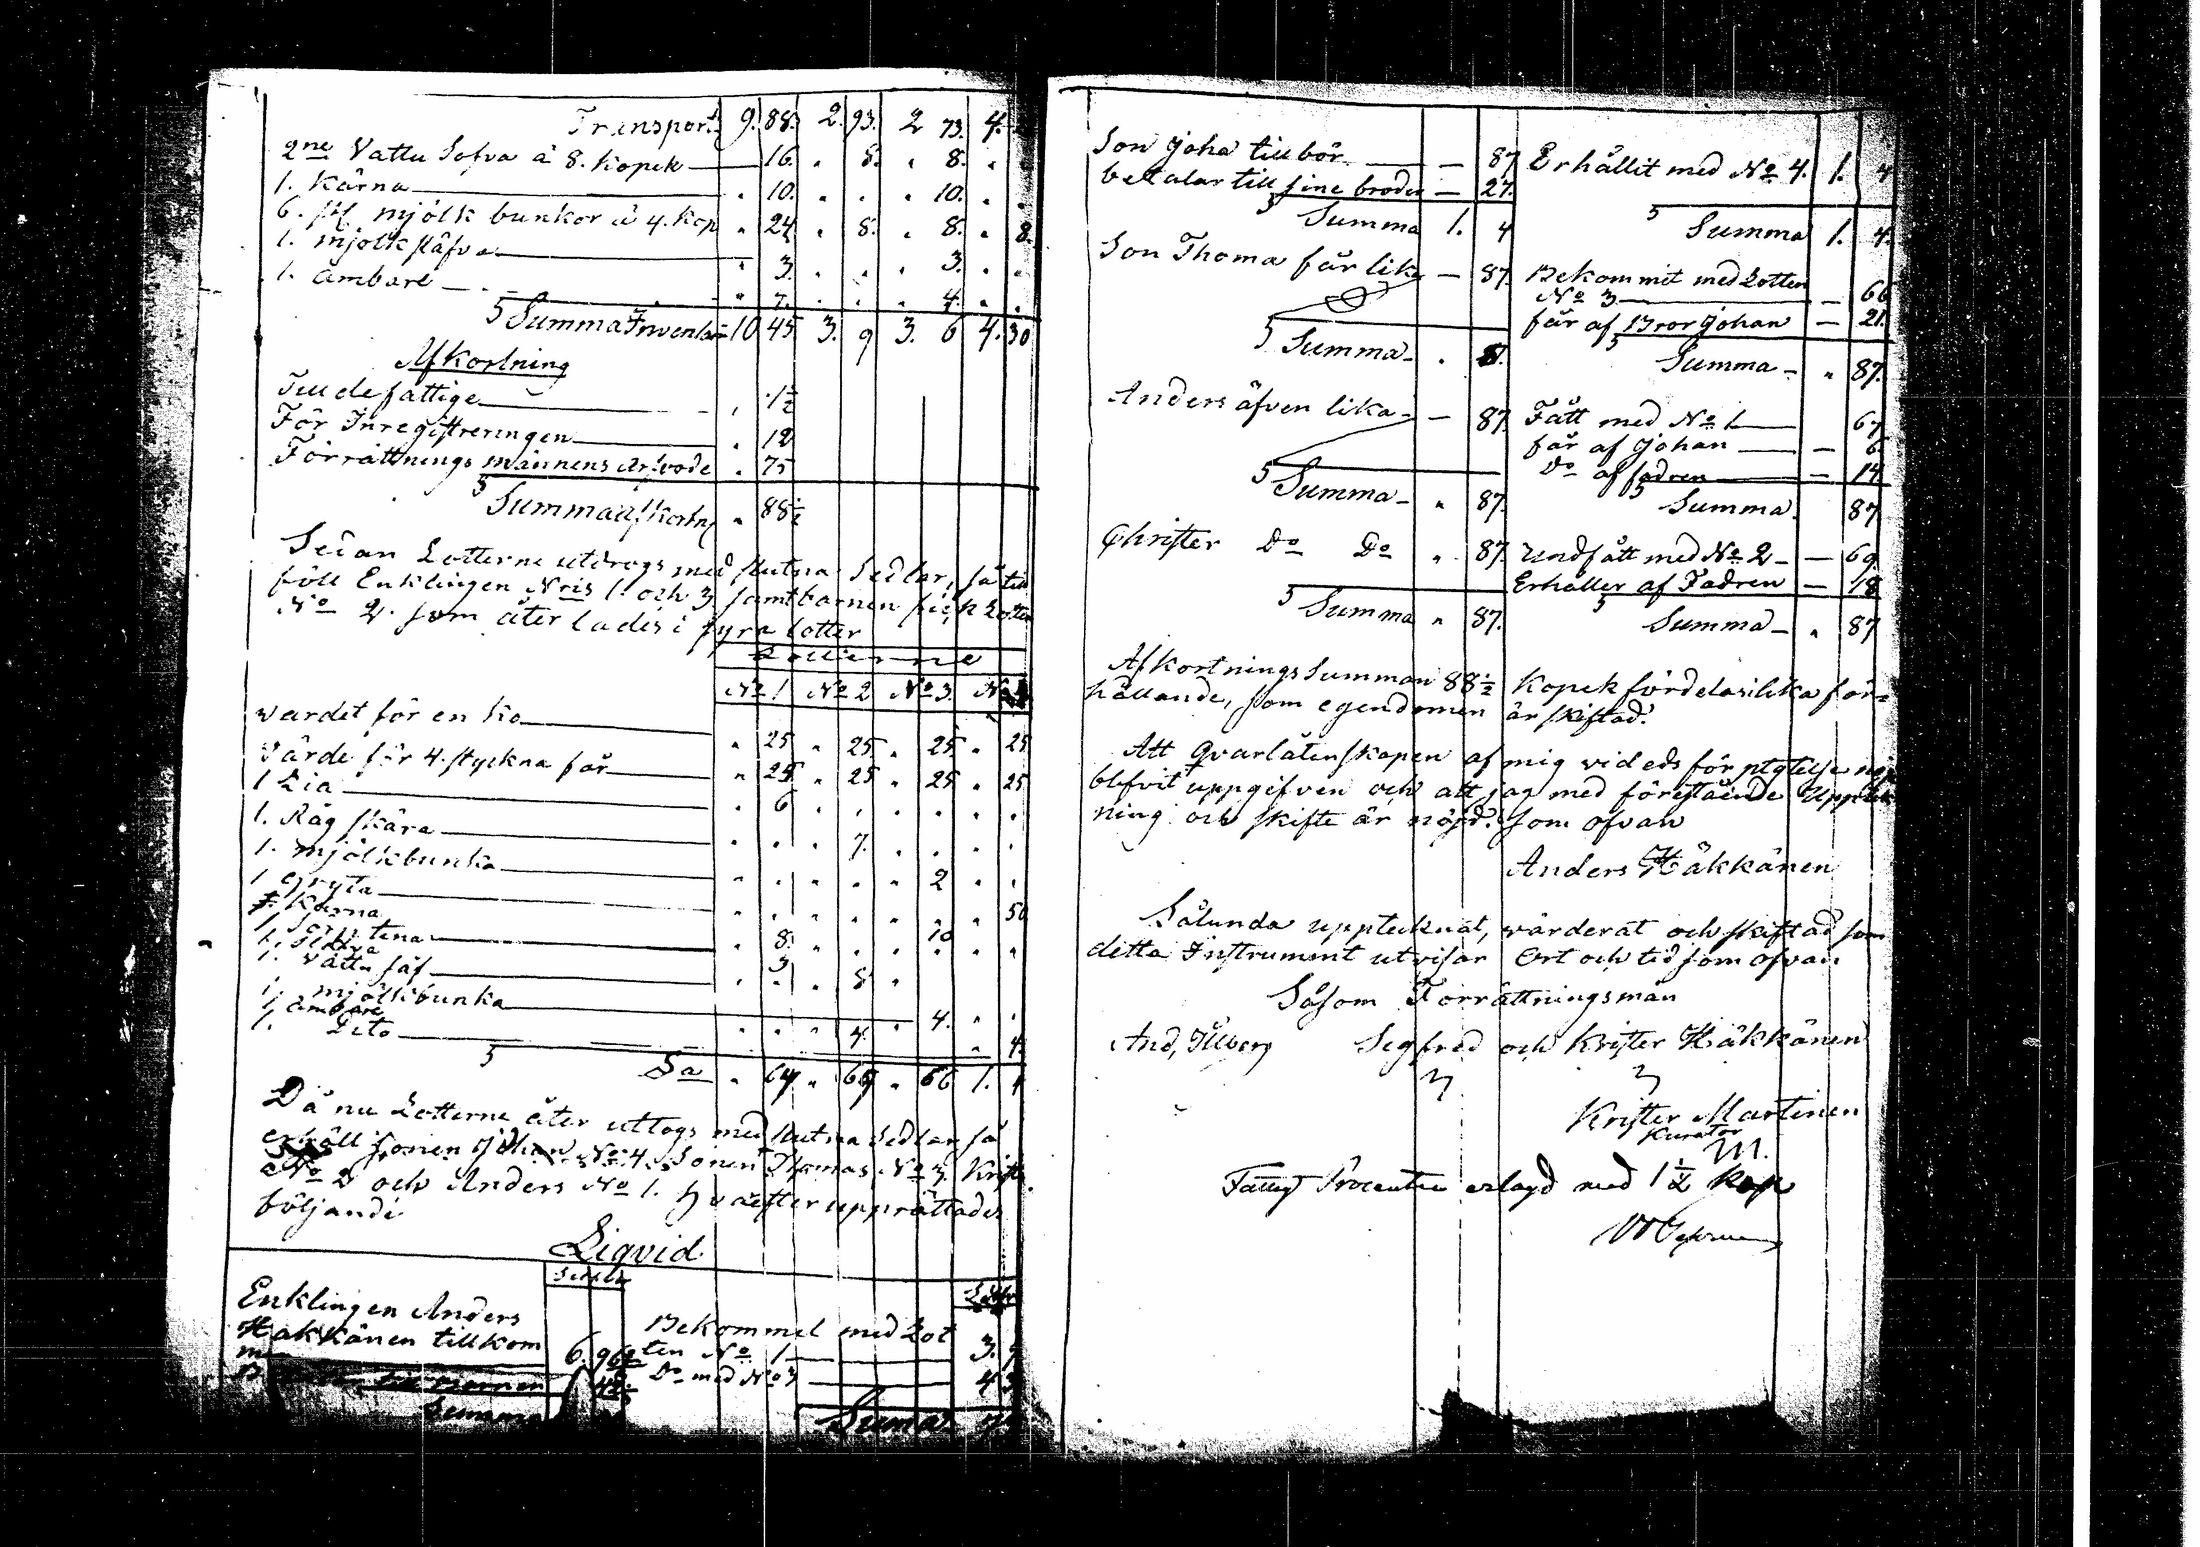 Transport 9. 88. 2. 93. 2 73. 4.
2ne Vattu Sofva â 8. Kopek — 16. „ 8. „ 8. „ „
1. Kärna — „ 10. „ „ „ 10. „ „
6. st mjölk bunkor â 4. Kop „ 24 „ 8. „ 8. „ 8.
1. mjölk stäfva — „ 3. „ „ „ 3. „ „
1. ämbare — „ 7. „ „ „ 4. „ „
Summa Inventar 10 45 3. 9 3. 6 4. 30
Afkortning
Till de fattige — „ 1½
För Inregistreringen — „ 12
Förrättnings männens Arfvode „ 75
Summa afkortn „ 88½
Sedan Lotterne utdrogs med slutna Sedlar, så till
föll Enklingen Nris 1. och 3 samt barnen fick Lotten
No 2. som åter lades i fyra lotter
Lotterne
No 1 No 2 No 3. No
värdet för en ko — „ 25 „ 25 „ 25 „ 25
värde för 4. styckna får — „ 25 „ 25 „ 25 „ 25
1 Lia — „ 6 „ „ „ „ „ „
1. Råg skära — „ „ „ 7. „ „ „ „
1. mjölkbunka — „ „ „ „ „ 2 „ „
1 gryta — „ „ „ „ „ „ „ 50
1. Kärna 10
tena — „ 8. „ „ „ „ „ „
1. Vattu säf — „ 3 „ 8 „
1. mjölkbunka — 4. „ „
1 ämbare „ „ „ 4.
1. Dito — „ 4.
Sa „ 67 „ 69 „ 66 1. 4
Då nu Lotterne åter uttogs med slutna Sedlar så
erhöll sonen Johan No 4. Sonen Thomas No 3. Krist
No 2 och Anders No 1. hvarefter upprättades
följande
Liqvid
Enklingen Anders
Häkkänen tillkom 6. 96
Bekommet med Lot
ten No 1 — 3.
Do med No 3 — 4
Summa
Summa 7
Son Joha tillbör — — 87
betalar till sine bröder — 27.
Summa 1. 4
Erhållit med No 4. 1. 4
Summa 1. 4.
Son Thoma får lika — 87.
Summa — „
Bekommit med Lotten
No 3 — — 66
får af Bror Johan — 21.
Summa — „ 87.
Anders äfven lika — — 87.
Summa — „ 87.
Fått med No 1 — 67
får af Johan — — 6.
Do af fadren — — 14
Summa 87
Christer Do Do „ 87.
Summa „ 87.
Undfått med No 2 — — 69
Erhåller af Fadren — 18
Summa — „ 87
Afkortnings Summan 88½ Kopek fördelas i lika för=
hållande, som egendomen är skiftad.
Att Qvarlåtenskapen af mig vid eds förpligtelse
blifvit uppgifven och att jag med förestående Uppteck
ning och skifte är nöjd. som ofvan
Anders Häkkänen
Sålunda upptecknat, värderat och skiftad som
detta Instrument utvisar Ort och tid som ofvan
Såsom Förrättningsmän
And, Ilberg Segfred och Krister Häkkänen
Krister Martinen
Kurator
M.
Fattig Procenten erlagd med 1½ Kop